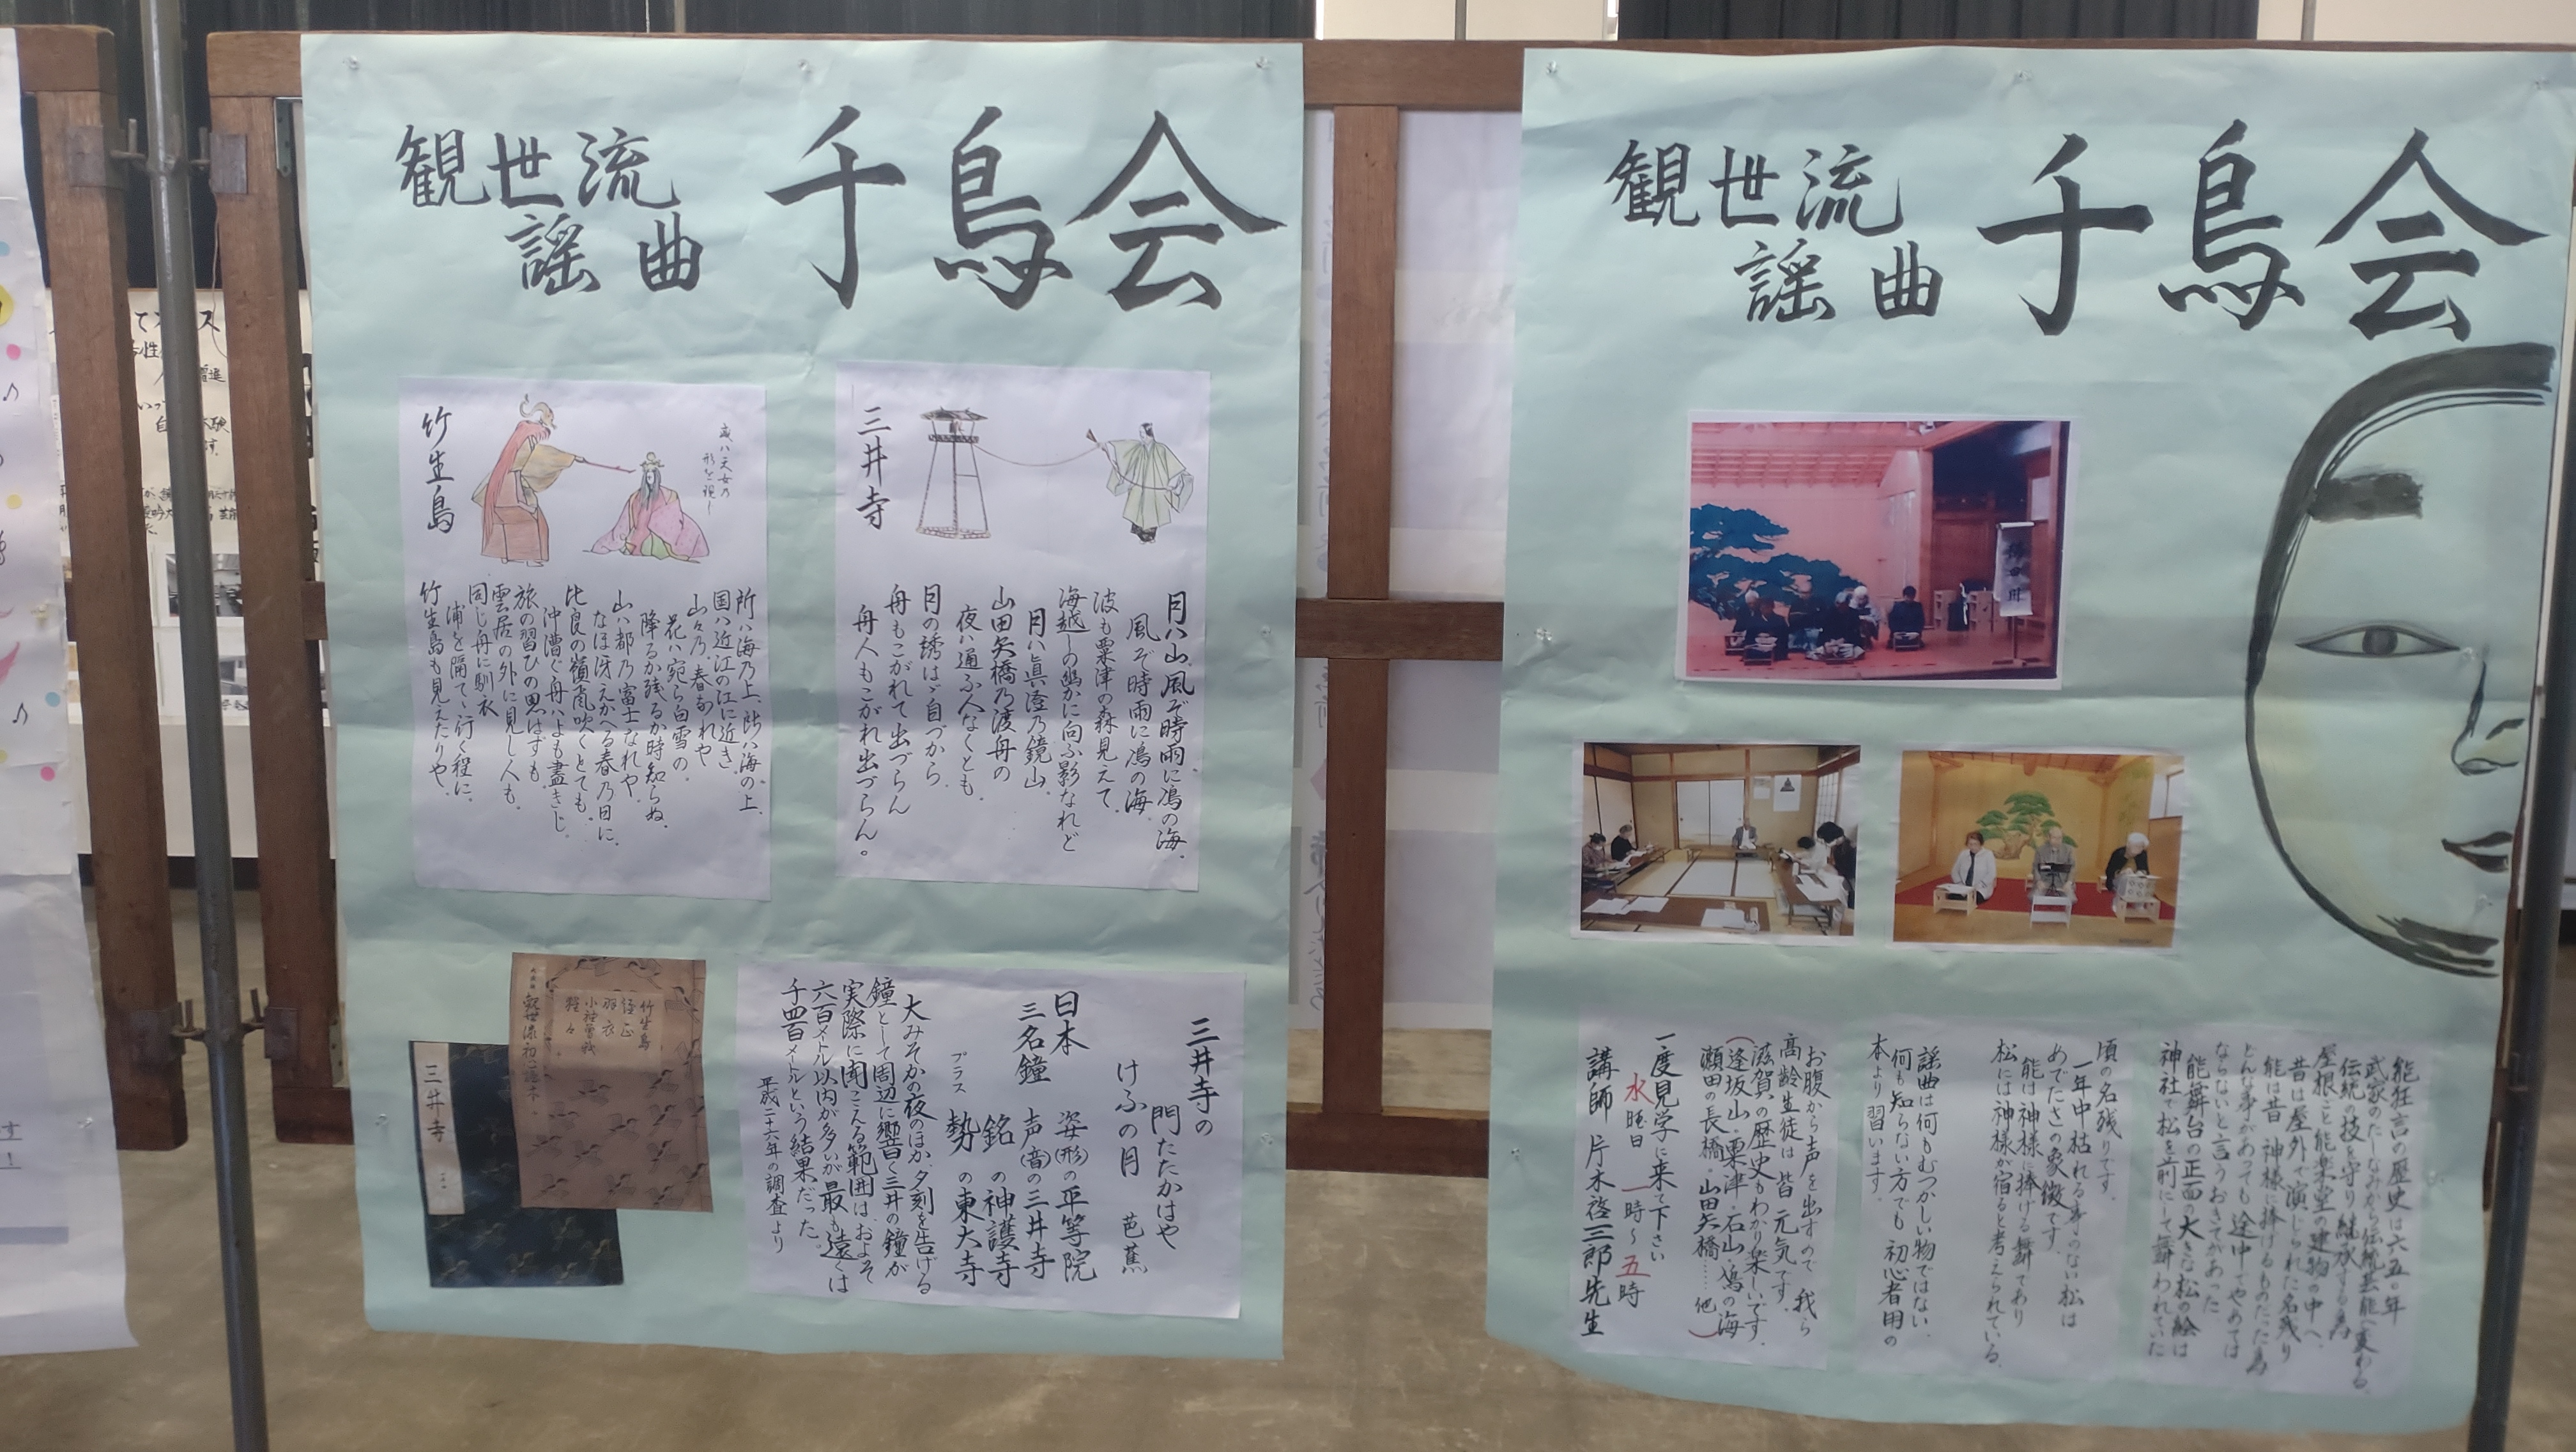 観世流
謡曲
千鳥会
三井寺
月ハ山、風ぞ時雨に鳰の海、
風ぞ時雨に鳰の海、
波も粟津の森見えて、
海越しの幽かに向ふ影なれど
月ハ真澄乃鏡山、
山田矢橋乃渡舟の
夜ハ通ふ人なくとも、
月の誘はゞ自づから、
舟もこがれて出づらん
舟人もこがれ出づらん。
竹生島
或ハ天女乃
形を現し
所ハ海乃上、所ハ海の上、
国ハ近江の江に近き
山々乃、春なれや
花ハ宛ら白雪の、
降るか残るか時知らぬ、
山ハ都乃富士なれや、
なほ冴えかへる春乃日に、
比良の嶺颪吹くとても、
沖漕ぐ舟ハよも盡きじ、
旅の習ひの思はずも、
雲居の外に見し人も、
同じ舟に馴衣
浦を隔てゝ行く程に、
竹生島も見えたりや、
三井寺の
門たたかはや
けふの月 芭蕉
日本
三名鐘
姿(形)の平等院
声(音)の三井寺
銘の神護寺
プラス
勢の東大寺
大みそかの夜のほか、夕刻を告げる
鐘として周辺に響く三井の鐘が
実際に聞こえる範囲は、およそ
六百メートル以内が多いが最も遠くは
千四百メートルという結果だった。
平成二十六年の調査より
竹生島
経正
羽衣
小袖曽我
猩々
三井寺
観世流
謡曲
千鳥会
能狂言の歴史は六五〇年
武家のたしなみから伝統芸能へ変わる
伝統の技を守り継承する為
屋根ごと能楽堂の建物の中へ
昔は屋外で演じられた名残り
能は昔 神様に捧げるものだった為
どんな事があっても途中でやめては
ならないと言うおきてがあった
能舞台の正面の大きな松の絵は
神社で松を前にして舞われていた
頃の名残りです。
一年中枯れる事のない松は
めでたさの象徴です。
能は神様に捧げる舞であり
松には神様が宿ると考えられている。
謡曲は何もむつかしい物ではない
何も知らない方でも初心者用の
本より習います。
お腹から声を出すので 我ら
高齢生徒は皆元気です。
滋賀の歴史もわかり楽しいです。
(逢坂山・粟津・石山・鳰の海
瀬田の長橋・山田矢橋……他)
一度見学に来て下さい
水曜日 一時〜五時
講師 片木啓三郎先生